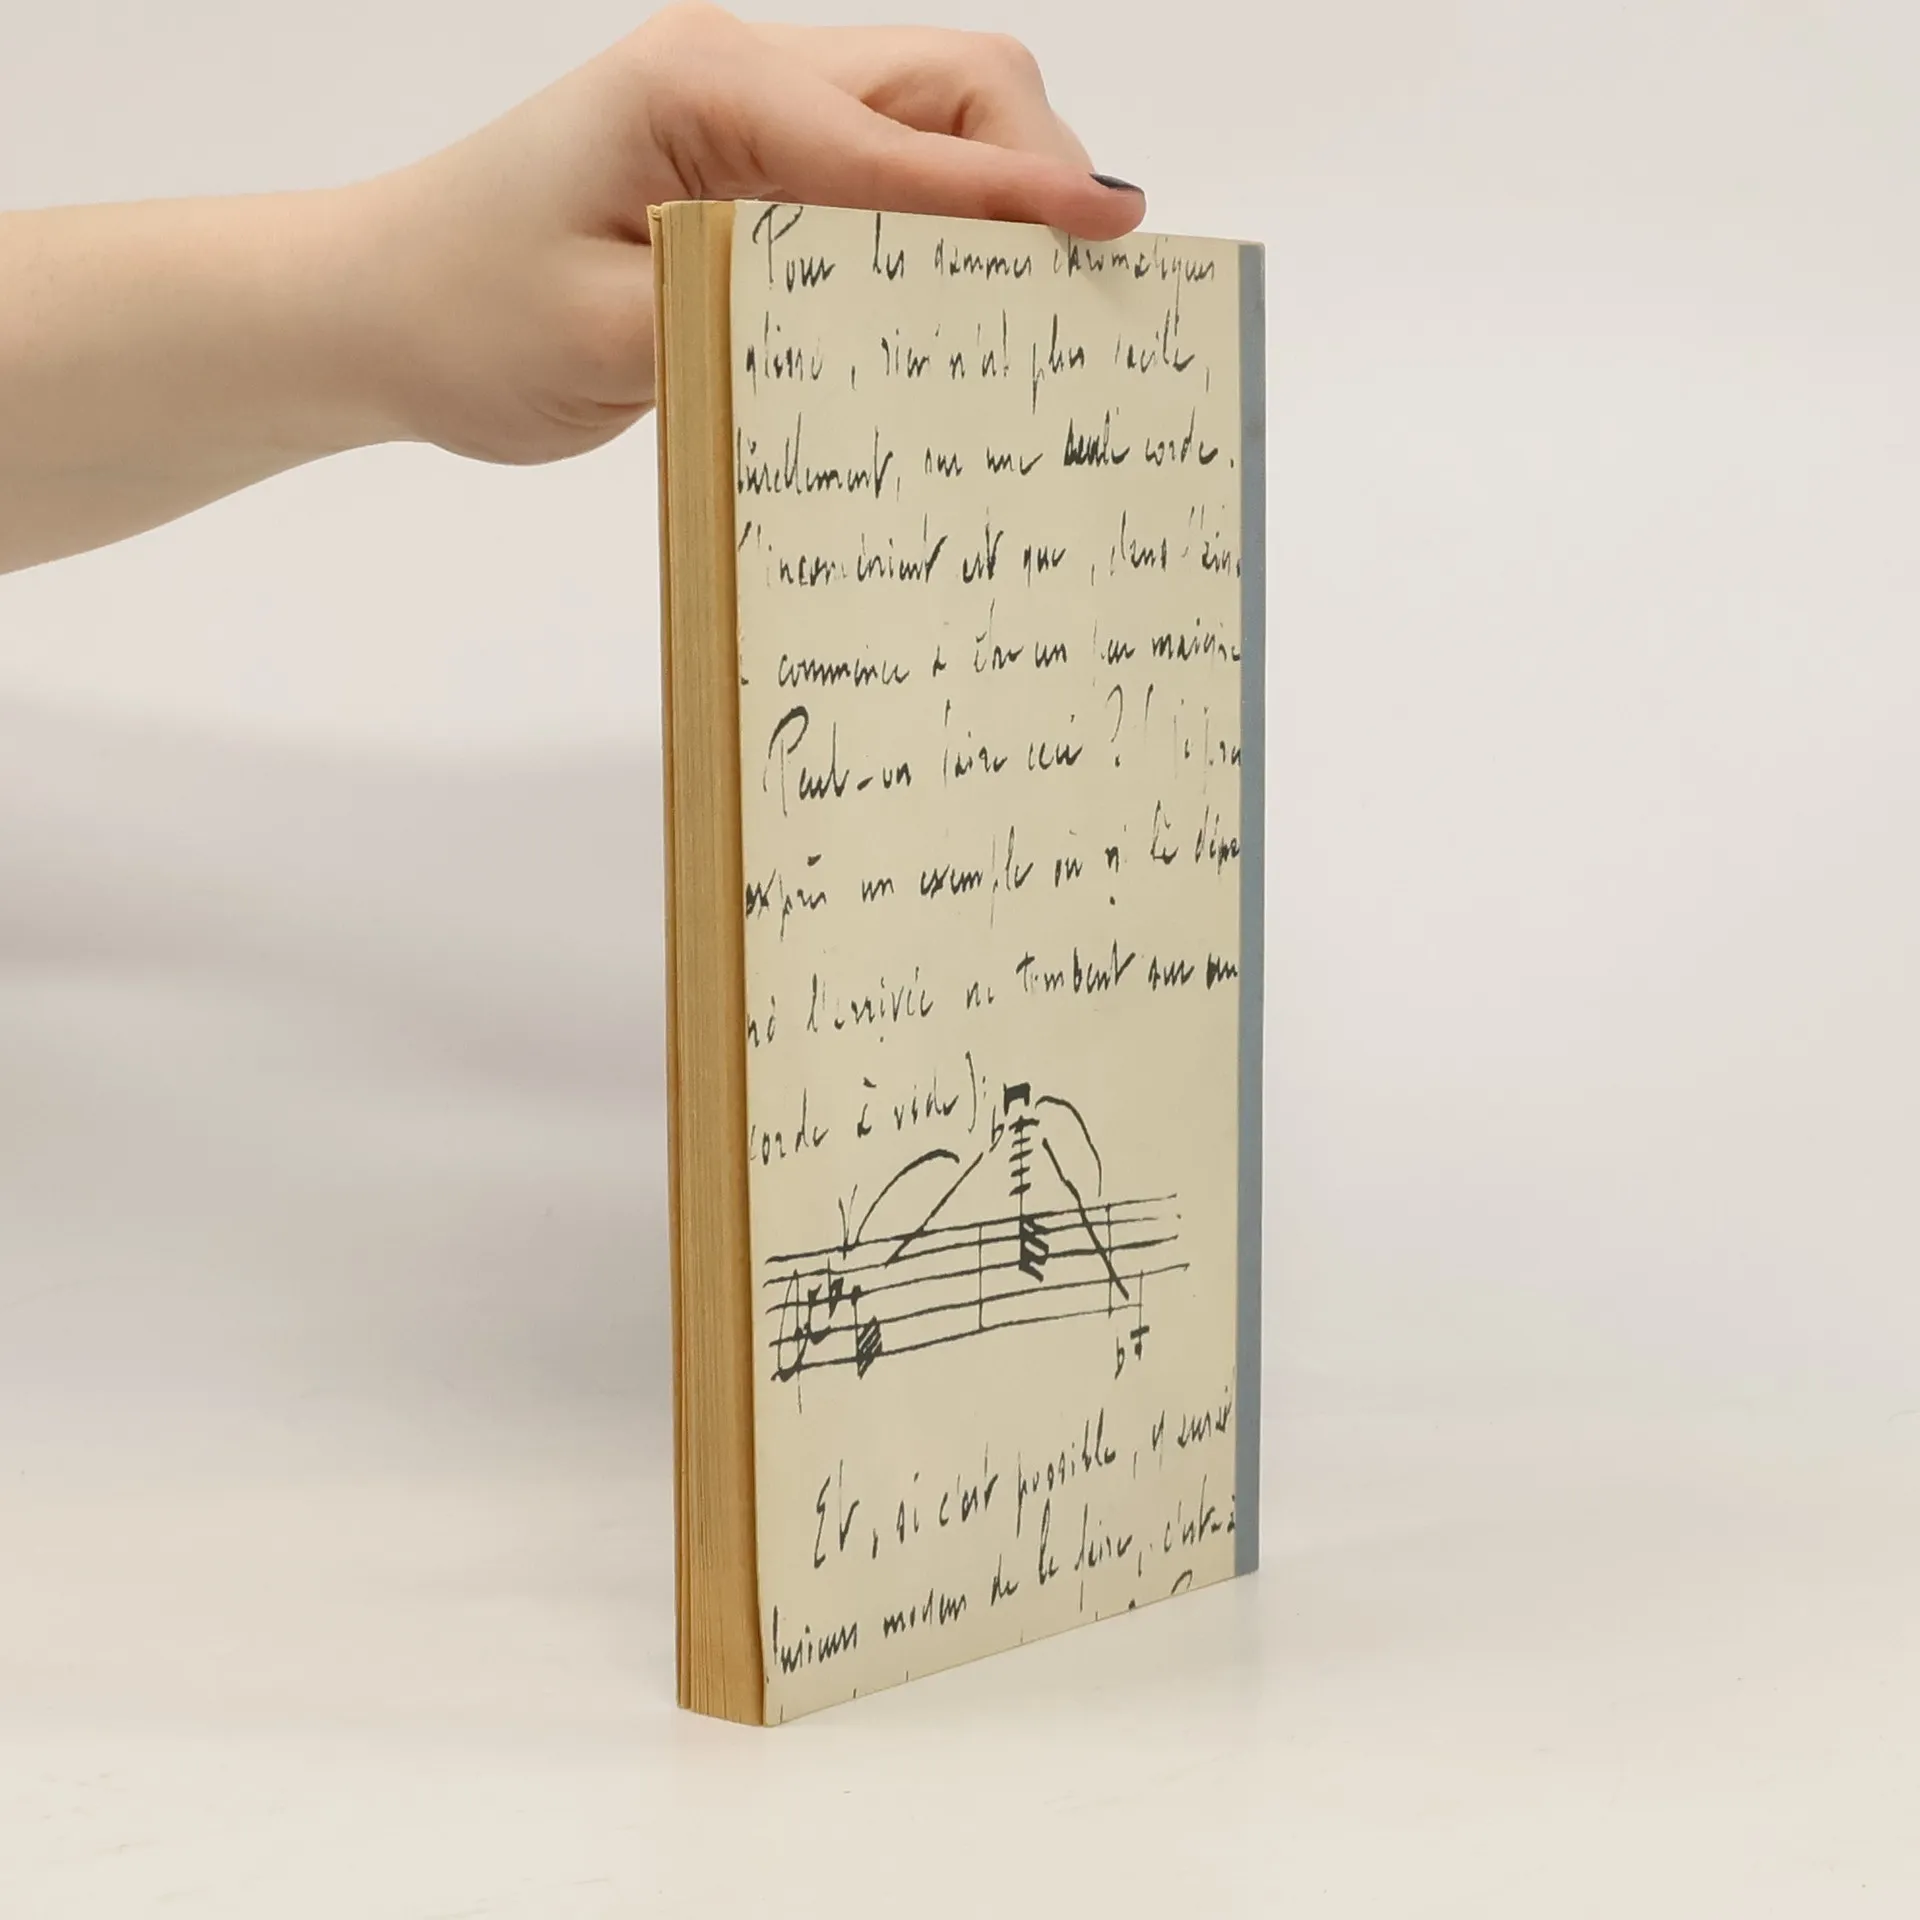 Pour les gammes chromatiques
glissé, rien n'est plus facile,
turellement, sur une seule corde.
L'inconvénient est que, dans l'aigu
commence à être un peu maigre
Peut-on faire ceci ? (
exprès un exemple où ni le dépa
ni l'arrivée ne tombent sur une
corde à vide):
Et, si c'est possible, y aurait
lusieurs modes de le faire, c'est-à